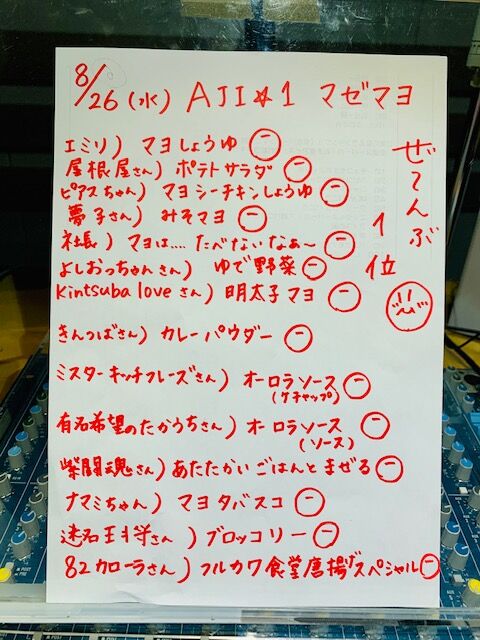 8/26(水) AJI☆1 マゼマヨ
エミリ) マヨしょうゆ ㊀
屋根屋さん) ポテトサラダ ㊀
ピアスちゃん) マヨシーチキンしょうゆ ㊀
夢子さん) みそマヨ ㊀
社長) マヨは.... たべないなぁ～ ㊀
よしおっちゃんさん) ゆで野菜 ㊀
Kintsuba loveさん) 明太子マヨ ㊀
きんつばさん) カレーパウダー ㊀
ミスターキッチフレーズさん) オーロラソース ㊀
(ケチャップ)
有名希望のたかうちさん) オーロラソース ㊀
(ソース)
紫闘魂さん) あたたかいごはんとまぜる ㊀
ナマミちゃん) マヨタバスコ ㊀
さん) ブロッコリー ㊀
82カローラさん) フルカワ食堂唐揚げスペシャル ㊀
ぜてんぶ
1位